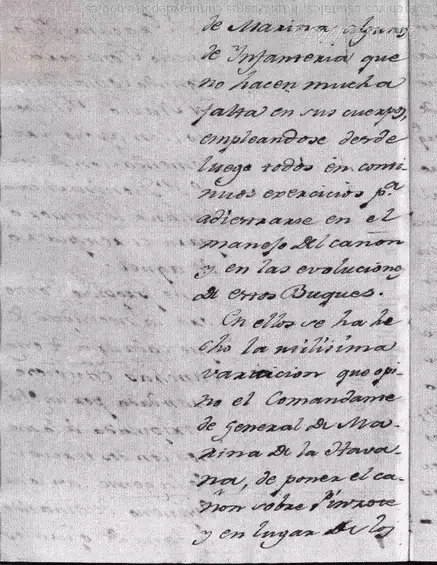 de Marina, algunos
de Infanteria que
no hacen mucha
falta en sus cuerpos,
empleandose desde
luego todos en conti
nuos exercicios pª
adiestrarse en el
manejo del cañon
y en las evoluciones
de estos Buques.
En ellos se ha he
cho la utilisima
variacion que opi
no el Comandante
General de Ma-
rina de la Hava-
na, de poner el ca-
ñon sobre Pinzote
y en lugar de los